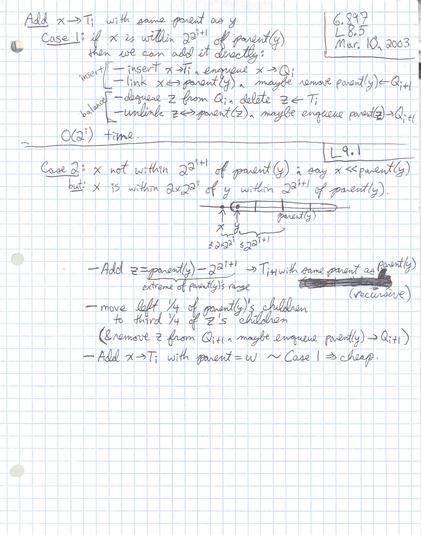 Add x → Tᵢ with same parent as y
6.897
L 8.5
Mar. 10, 2003
Case 1: if x is within 2^2^(i+1) of parent(y)
then we can add it directly:
insert
– insert x → Tᵢ, enqueue x → Qᵢ
– link x ↔ parent(y), maybe remove parent(y) ← Qᵢ₊₁
balance
– dequeue z from Qᵢ, delete z ← Tᵢ
– unlink z ↔ parent(z), maybe enqueue parent(z) → Qᵢ₊₁
O(2ⁱ) time
L 9.1
Case 2: x not within 2^2^(i+1) of parent(y): say x << parent(y)
but: x is within 2×2^2^i of y within 2^2^(i+1) of parent(y).
parent(y)
x y
≤2×2^2^i ≤2^2^(i+1)
– Add z = parent(y) – 2^2^(i+1) → Tᵢ₊₁ with same parent as parent(y)
extreme of parent(y)'s range
(recursive)
– move left 1/4 of parent(y)'s children
to third 1/4 of z's children
(& remove z from Qᵢ₊₁, maybe enqueue parent(y) → Qᵢ₊₁)
– Add x → Tᵢ with parent = w ~ Case 1 ⇒ cheap.